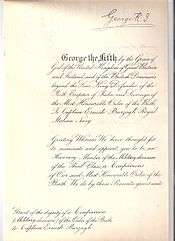 George R.I.
George the Fifth by the Grace of
God of the United Kingdom of Great Britain
and Ireland and of the British Dominions
beyond the Seas King Defender of the
Faith Emperor of India and Sovereign of
the Most Honourable Order of the Bath
To Captain Ernest Burgagh Royal
Navy
Greeting Whereas We have thought fit
to nominate and appoint you to be an
Member of the Military division
of the Third Class or Companions
of Our said Most Honourable Order of the
Bath We do by these Presents grant unto
Grant of the dignity of a Companion
Military division of the Order of the Bath
to Captain Ernest